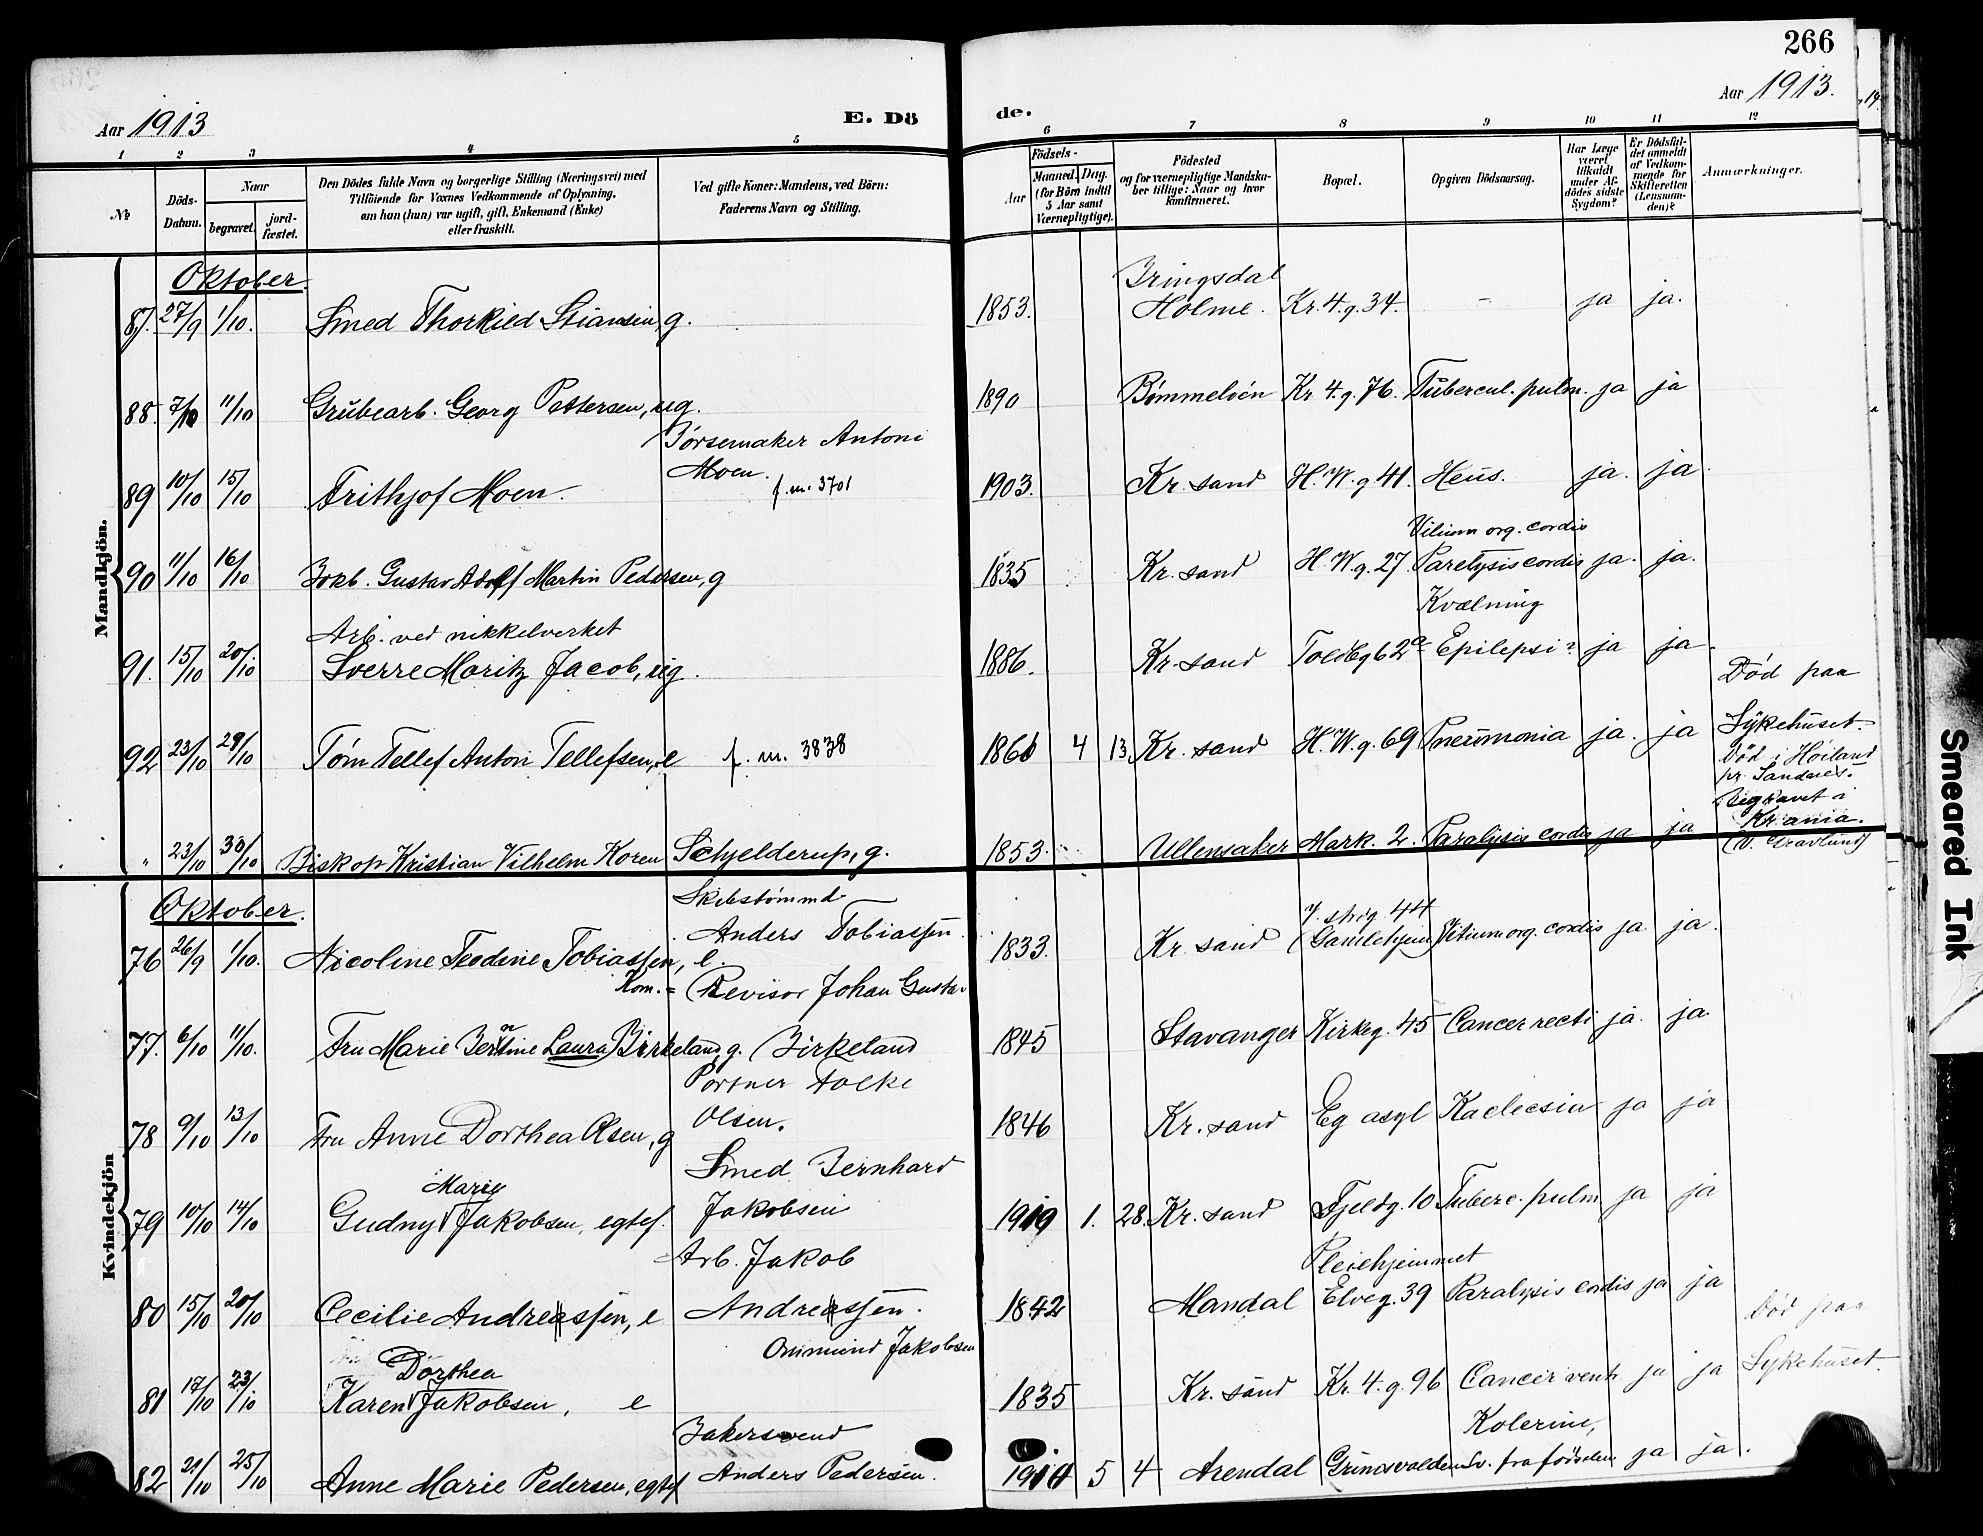 266
Aar 1913
E. Dö
de.
Aar 1913.
1 2 3 4 5 6 7 8 9 10 11 12
No
Döds-
Datum.
Naar
begravet.
jord-
fæstet.
Den Dödes fulde Navn og borgerlige Stilling (Næringsvei) med
Tilföiende for Voxnes Vedkommende af Oplysning,
om han (hun) var ugift, gift, Enkemand (Enke)
eller fraskilt.
Ved gifte Koner: Mandens, ved Börn:
Faderens Navn og Stilling.
Födsels-
Aar
Maaned. Dag.
(for Börn indtil
5 Aar samt
Værnepligtige).
Födested
og for værnepligtige Mandska-
ber tillige: Naar og hvor
konfirmeret.
Bopæl.
Opgiven Dödsaarsag.
Har Læge
været
tilkaldt
under Af-
dödes sidste
Sygdom?
Er Dödsfal-
det anmeldt
af Vedkom-
mende for
Skifteretten
(Lensman-
den)?
Anmærkninger.
Mandkjön.
Oktober.
87. 27/9 1/10. Smed Thorkild Stiansen, g. 1853. Iringsdal
Holme. Kr. 4. g. 34. - ja ja.
88. 7/10 11/10 Grubearb. Georg Pettersen, ug. 1890 Bømmeløen Kr. 4. g. 76. Tubercul. pulm. ja ja
Børsemaker Antoni
89 10/10 15/10 Frithjof Moen. Moen. f. m. 3701 1903. Kr. sand H. W. g 41. Ileus. ja. ja.
Vitium org. cordis
90 11/10 16/10 Gustav Adolf Martin Pedersen, g 1835 Kr. sand H. W. g. 27. Paralysis cordis ja. ja.
Arb. ved nikkelverket
Kvælning
91. 15/10 20/10 Sverre Moritz Jacob, ug. 1886. Kr. sand Toldbg 62a Epilepsi? ja ja.
Død paa
Sykehuset.
92 23/10 29/10 Tøm Tellef Anton Tellefsen, e f. m. 3838 1861 4 13. Kr. sand H. W. g. 69 Pneumonia ja. ja
Død i Høiland
pr. Sandnes.
Begravet i
Kr.ania.
(V. Gravlund)
" 23/10 30/10 Biskop Kristian Vilhelm Koren Schjelderup, g. 1853. Ullensaker Mark. 2. Paralysis cordis ja ja
Kvindekjön
Oktober.
76 26/9 1/10. Nicoline Teodine Tobiassen, e. Skibstømmd
Anders Tobiassen. 1833. Kr. sand 7. strg. 44
(Gamlehjem) Vitium org. cordis ja ja.
77. 6/10 11/10. Fru Marie Berntine Laura Birkeland, g. Kom.= Revisor Johan Gustav
Birkeland 1845 Stavanger Kirkeg. 45 Cancer recti ja. ja.
78 9/10 13/10 Fru Anne Dorthea Olsen, g Portner Tolke
Olsen. 1846 Kr. sand Eg asyl Kachecsia ja ja
79 10/10 14/10 Gudny Marie Jakobsen, egtef. Smed Bernhard
Jakobsen 1909 1. 28. Kr. sand Fjeldg. 10 Tuberc. pulm. ja ja
80 15/10 20/10 Cecilie Andreassen, e Arb. Jakob
Andreassen. 1842 Mandal Pleiehjemmet
Elveg. 39 Paralysis cordis ja ja
81 17/10 23/10 Karen Dorthea Jakobsen, e Ommund Jakobsen 1835 Kr. sand Kr. 4. g. 96 Cancer ventr. ja ja Død paa
Sykehuset.
82 21/10 25/10 Anne Marie Pedersen, egtef Bakersvend
Anders Pedersen. 1910 5 4 Arendal Grimsvolden Kolerine,
Sv. fra fødselen ja ja.
Smeared Ink